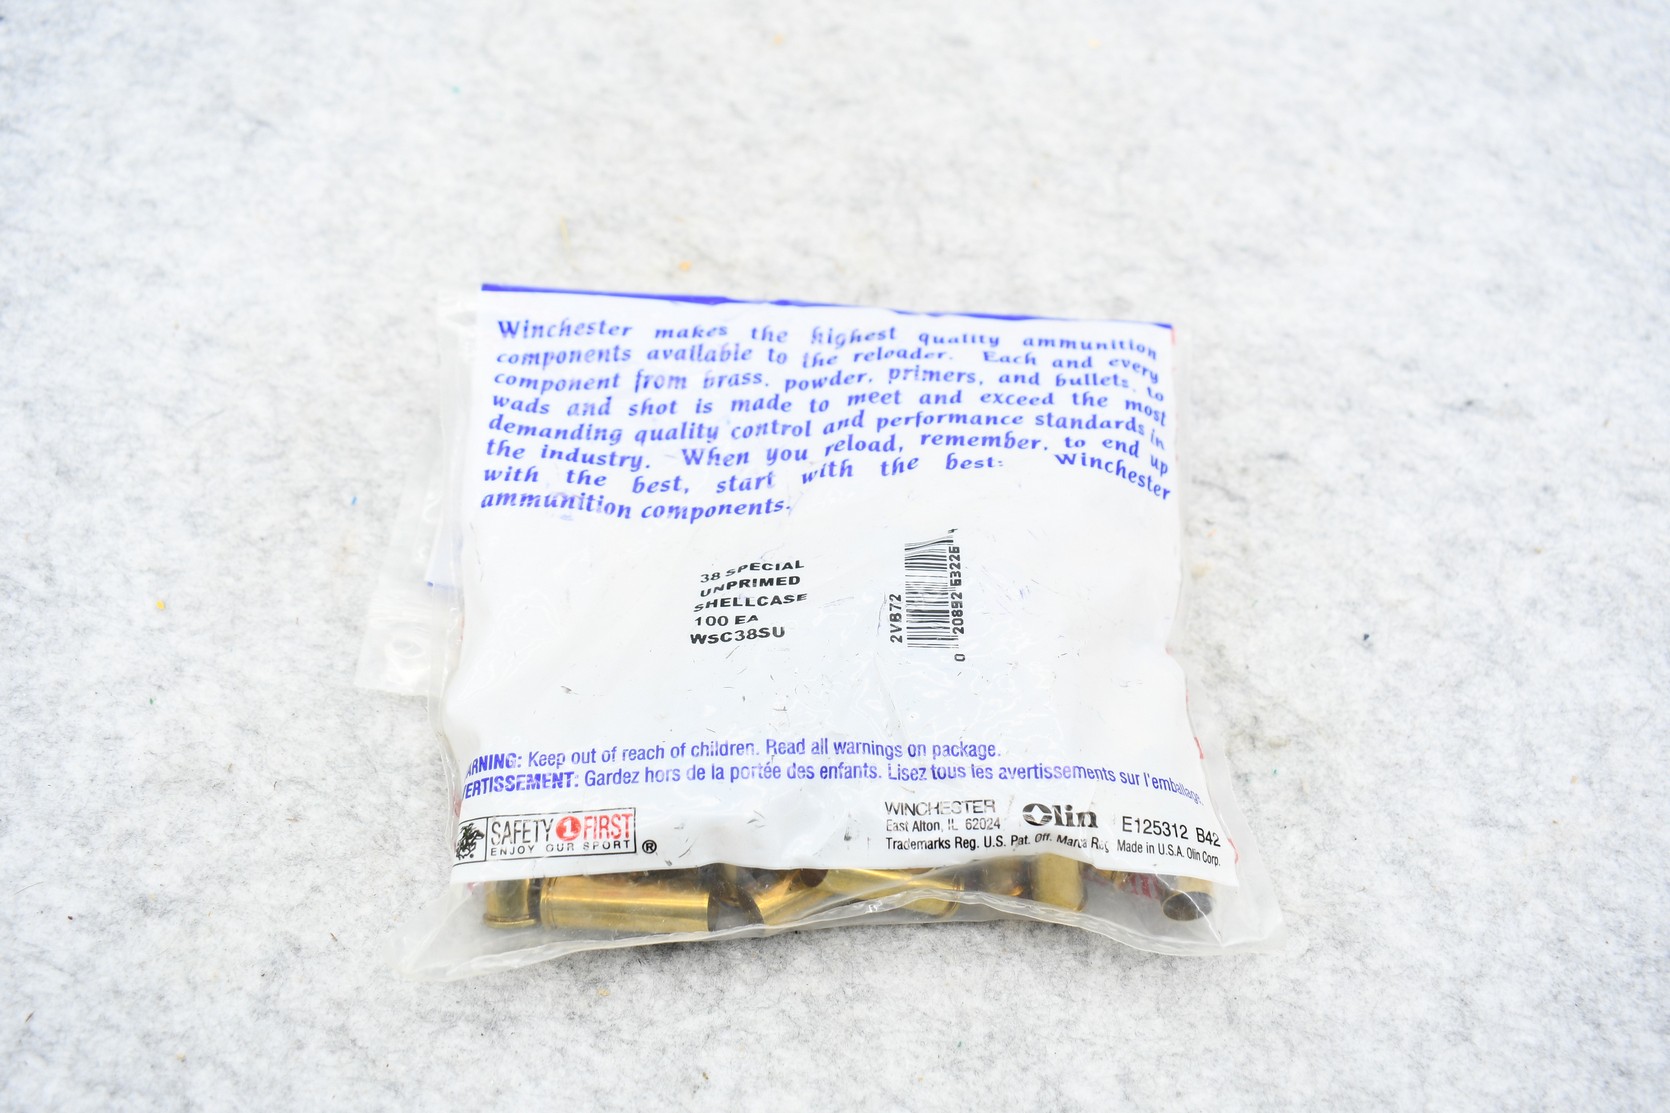 Winchester makes the highest quality ammunition
components available to the reloader. Each and every
component from brass, powder, primers, and bullets, to
wads and shot is made to meet and exceed the most
demanding quality control and performance standards in
the industry. When you reload, remember, to end up
with the best, start with the best: Winchester
ammunition components.
38 SPECIAL
UNPRIMED
SHELLCASE
100 EA
WSC38SU
2VB72
0 20892 63226 4
ARNING: Keep out of reach of children. Read all warnings on package.
VERTISSEMENT: Gardez hors de la portée des enfants. Lisez tous les avertissements sur l'emballage.
SAFETY 1 FIRST
ENJOY OUR SPORT ®
WINCHESTER
East Alton, IL 62024
Olin
E125312 B42
Trademarks Reg. U.S. Pat. Off. Marca Reg Made in U.S.A. Olin Corp.